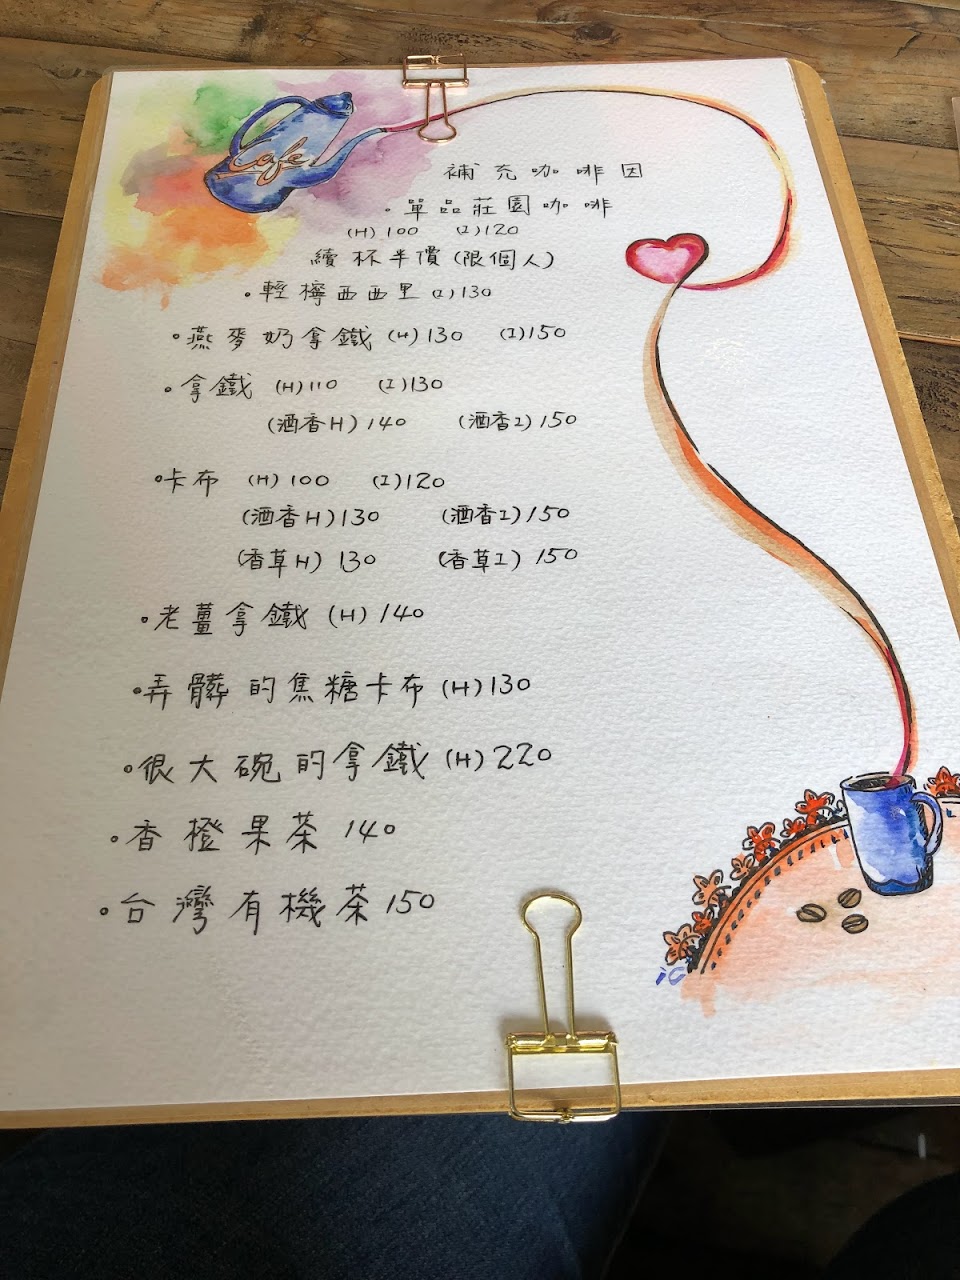 cafe
補充咖啡因
·單品莊園咖啡
(H) 100 (I) 120
續杯半價(限個人)
·輕檸西西里 (I) 130
·燕麥奶拿鐵 (H) 130 (I) 150
·拿鐵 (H) 110 (I) 130
(酒香H) 140 (酒香I) 150
·卡布 (H) 100 (I) 120
(酒香H) 130 (酒香I) 150
(香草H) 130 (香草I) 150
·老薑拿鐵 (H) 140
·弄髒的焦糖卡布 (H) 130
·很大碗的拿鐵 (H) 220
·香橙果茶 140
·台灣有機茶 150